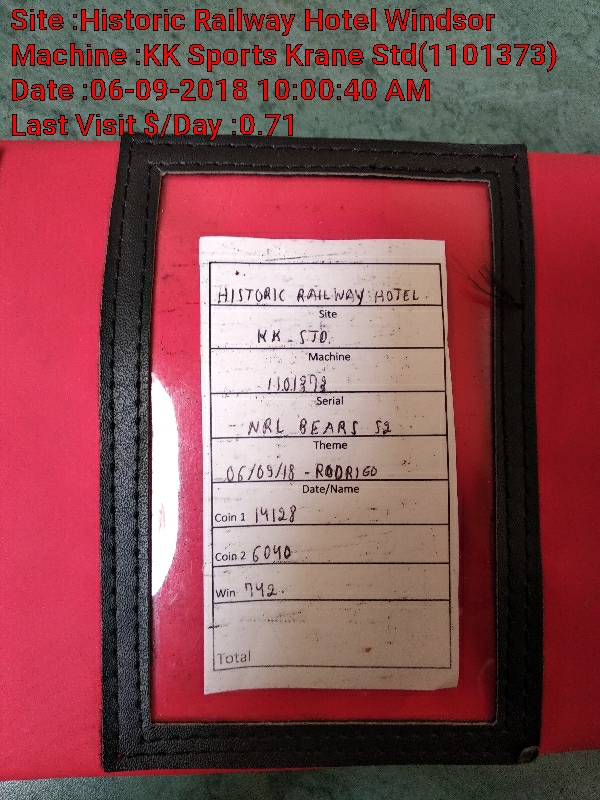 Site :Historic Railway Hotel Windsor
Machine :KK Sports Krane Std(1101373)
Date :06-09-2018 10:00:40 AM
Last Visit $/Day :0.71
HISTORIC RAILWAY HOTEL
Site
KK STD
Machine
1101373
Serial
NRL BEARS S2
Theme
06/09/18 - RODRIGO
Date/Name
Coin 1 14128
Coin 2 6040
Win 742.
Total